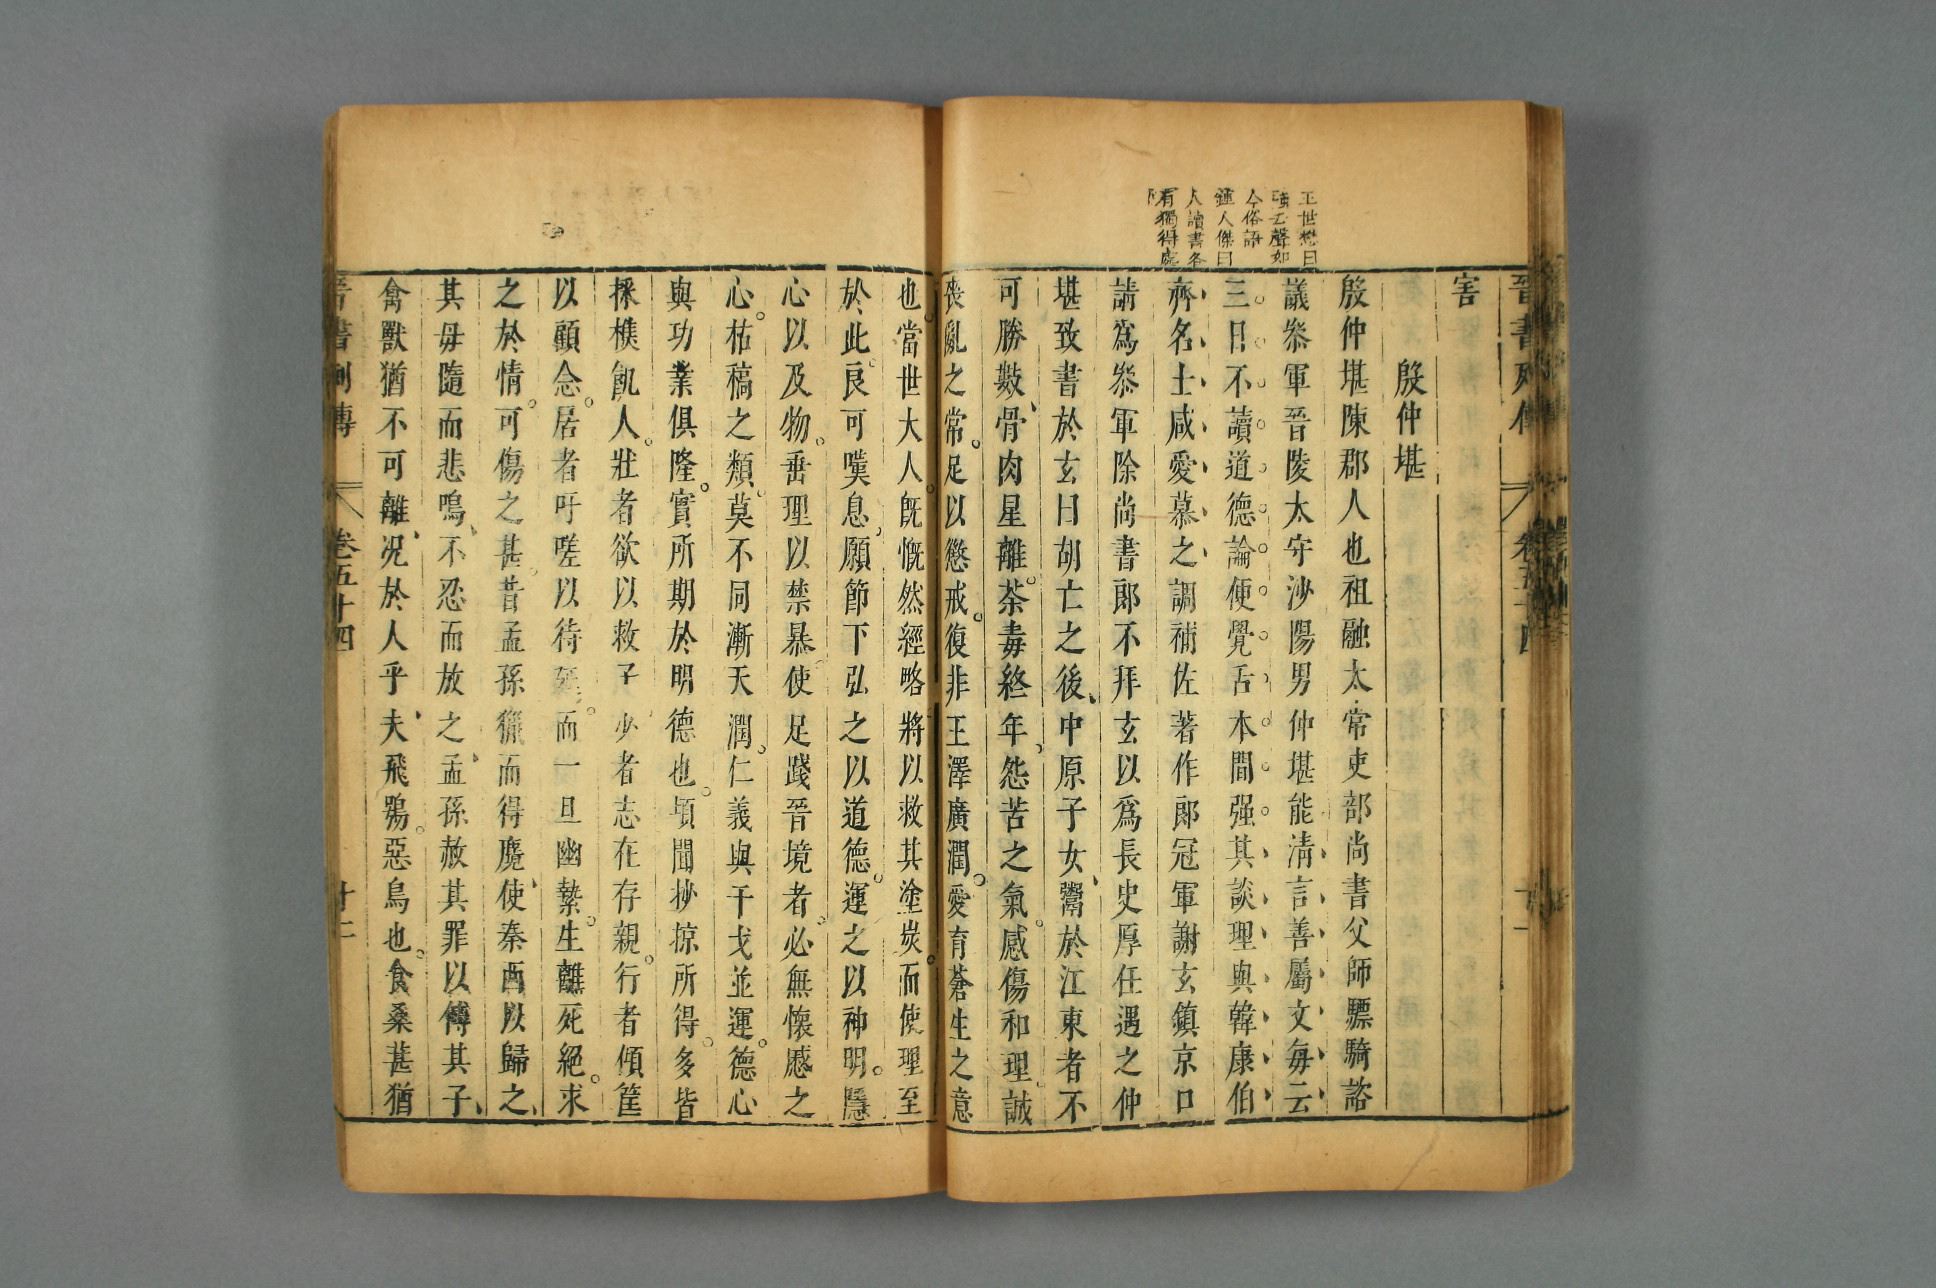 晉書列傳 卷五十四 十一
王世懋曰
強去聲如
今俗語
鍾人傑曰
人讀書各
有獨得處
害
殷仲堪
殷仲堪陳郡人也祖融太常吏部尚書父師驃騎諮
議叅軍晉陵太守沙陽男仲堪能淸言善屬文每云
三日不讀道德論便覺舌本間强其談理與韓康伯
齊名士咸愛慕之調補佐著作郞冠軍謝玄鎮京口
請爲叅軍除尚書郞不拜玄以爲長史厚任遇之仲
堪致書於玄曰胡亡之後中原子女鬻於江東者不
可勝數骨肉星離荼毒終年怨苦之氣感傷和理誠
喪亂之常足以懲戒復非王澤廣潤愛育蒼生之意
也當世大人旣慨然經略將以救其塗炭而使理至
於此良可嘆息願節下弘之以道德運之以神明隱
心以及物垂理以禁暴使足踐晉境者必無懷慼之
心枯槁之類莫不同漸天潤仁義與干戈並運德心
與功業俱隆實所期於明德也頃聞抄掠所得多皆
採樵飢人壯者欲以救子少者志在存親行者傾筐
以顧念居者吁嗟以待延而一旦幽縶生離死絕求
之於情可傷之甚昔孟孫獵而得麑使秦西以歸之
其母隨而悲鳴不忍而放之孟孫赦其罪以傅其子
禽獸猶不可離况於人乎夫飛鴞惡鳥也食桑葚猶
晉書列傳 卷五十四 十二